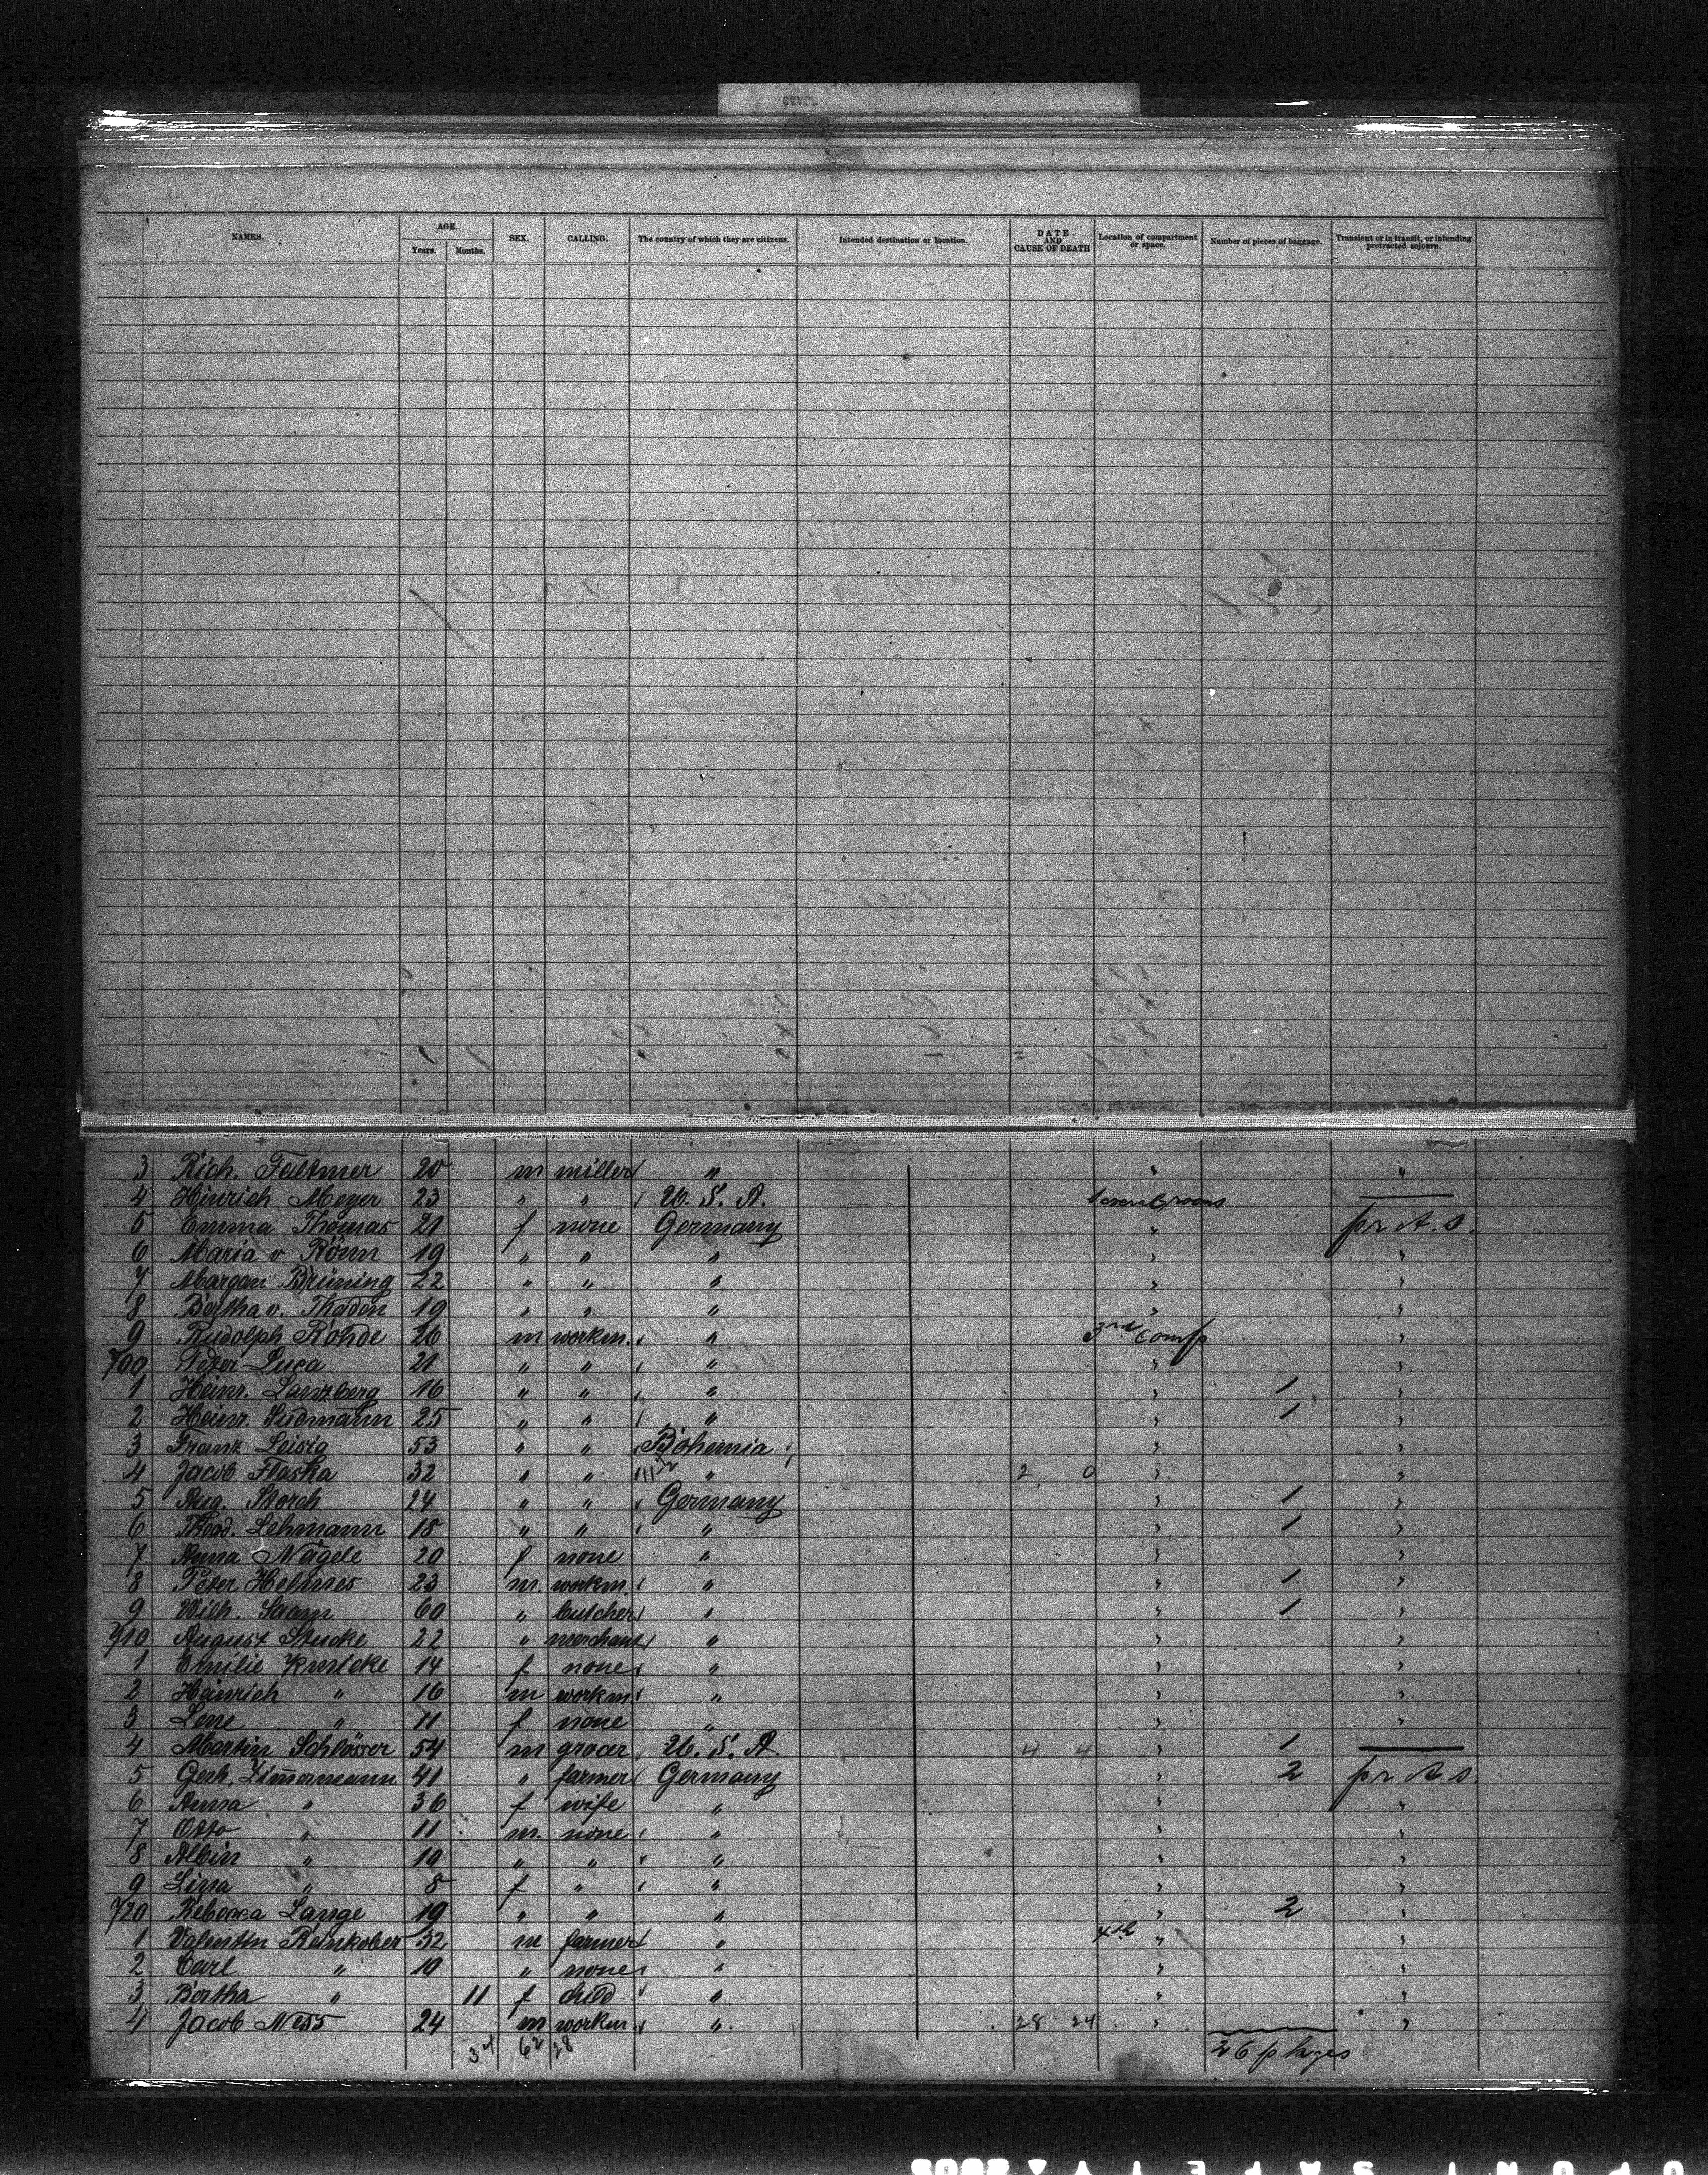 NAMES. AGE. Years. Months. SEX. CALLING. The country of which they are citizens. Intended destination or location. DATE AND CAUSE OF DEATH Location of compartment or space. Number of pieces of baggage. Transient or in transit, or intending protracted sojourn.
3 Rich. Feltmer 20 m miller " " "
4 Hinrich Meyer 23 " " U. S. A.
5 Emma Thomas 21 f none Germany " pr A. s.
6 Maria v Rönn 19 " " " " "
7 Margar. Brüning 22 " " " " "
8 Bertha v. Thaden 19 " " " " "
9 Rudolph Rohde 26 m workm. " 3rd comp "
700 Peter Luca 21 " " " " "
1 Heinr. Lanzberg 16 " " " " 1 "
2 Heinr. Sudmann 25 " " " " 1 "
3 Franz Leisig 53 " " Bohemia " "
4 Jacob Flaska 32 " " " 2 0 " "
5 Aug. Storch 24 " " Germany " 1 "
6 Theod. Lehmann 18 " " " " 1 "
7 Anna Nägele 20 f none " " "
8 Peter Helmes 23 m. workm. " " 1 "
9 Wilh. Saam 60 " butcher " " 1 "
710 August Stucke 22 " merchant " " "
1 Emilie 14 f none " " "
2 Heinrich " 16 m workm " " "
3 Lene " 11 f none " " "
4 Martin Schlösser 54 m grocer U. S. A. 4 4 " 1
5 Gerh. Zimmermann 41 " farmer Germany " 2 pr A s.
6 Anna " 36 f wife " " "
7 Otto " 11 m. none " " "
8 Albin " 10 " " " " "
9 Lina " 8 f " " " "
720 Rebecca Lange 19 " " " " 2 "
1 Valentin Reinkober 32 m farmer " 4th " "
2 Carl " 10 " none " " "
3 Bertha " 11 f child " " "
4 Jacob Ness 24 m workm " 28 24 " "
34 62 28 26 p